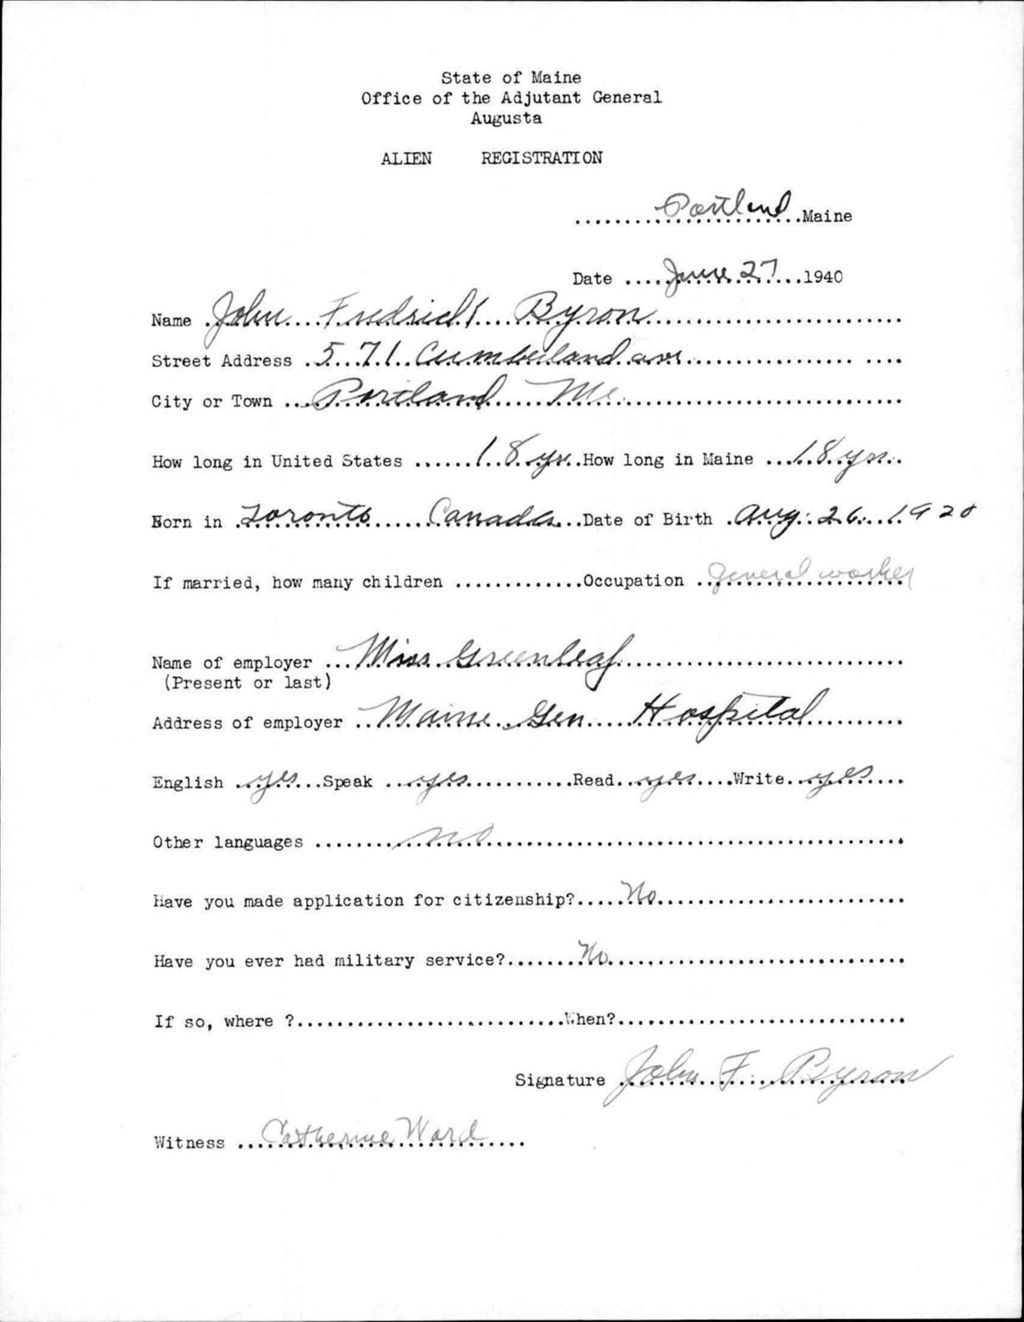 State of Maine
Office of the Adjutant General
Augusta
ALIEN REGISTRATION
Portland Maine
Date June 27 1940
Name John Fredrick Byron
Street Address 571 Cumberland ave
City or Town Portland Me.
How long in United States 18 yr. How long in Maine 18 yrs.
Born in Toronto Canada Date of Birth Aug. 26. 1920
If married, how many children Occupation general worker
Name of employer Miss Greenleaf
(Present or last)
Address of employer Maine Gen Hospital
English yes Speak yes Read yes Write yes
Other languages no
Have you made application for citizenship? No
Have you ever had military service? No
If so, where ? When?
Signature John F. Byron
Witness Catherine Ward